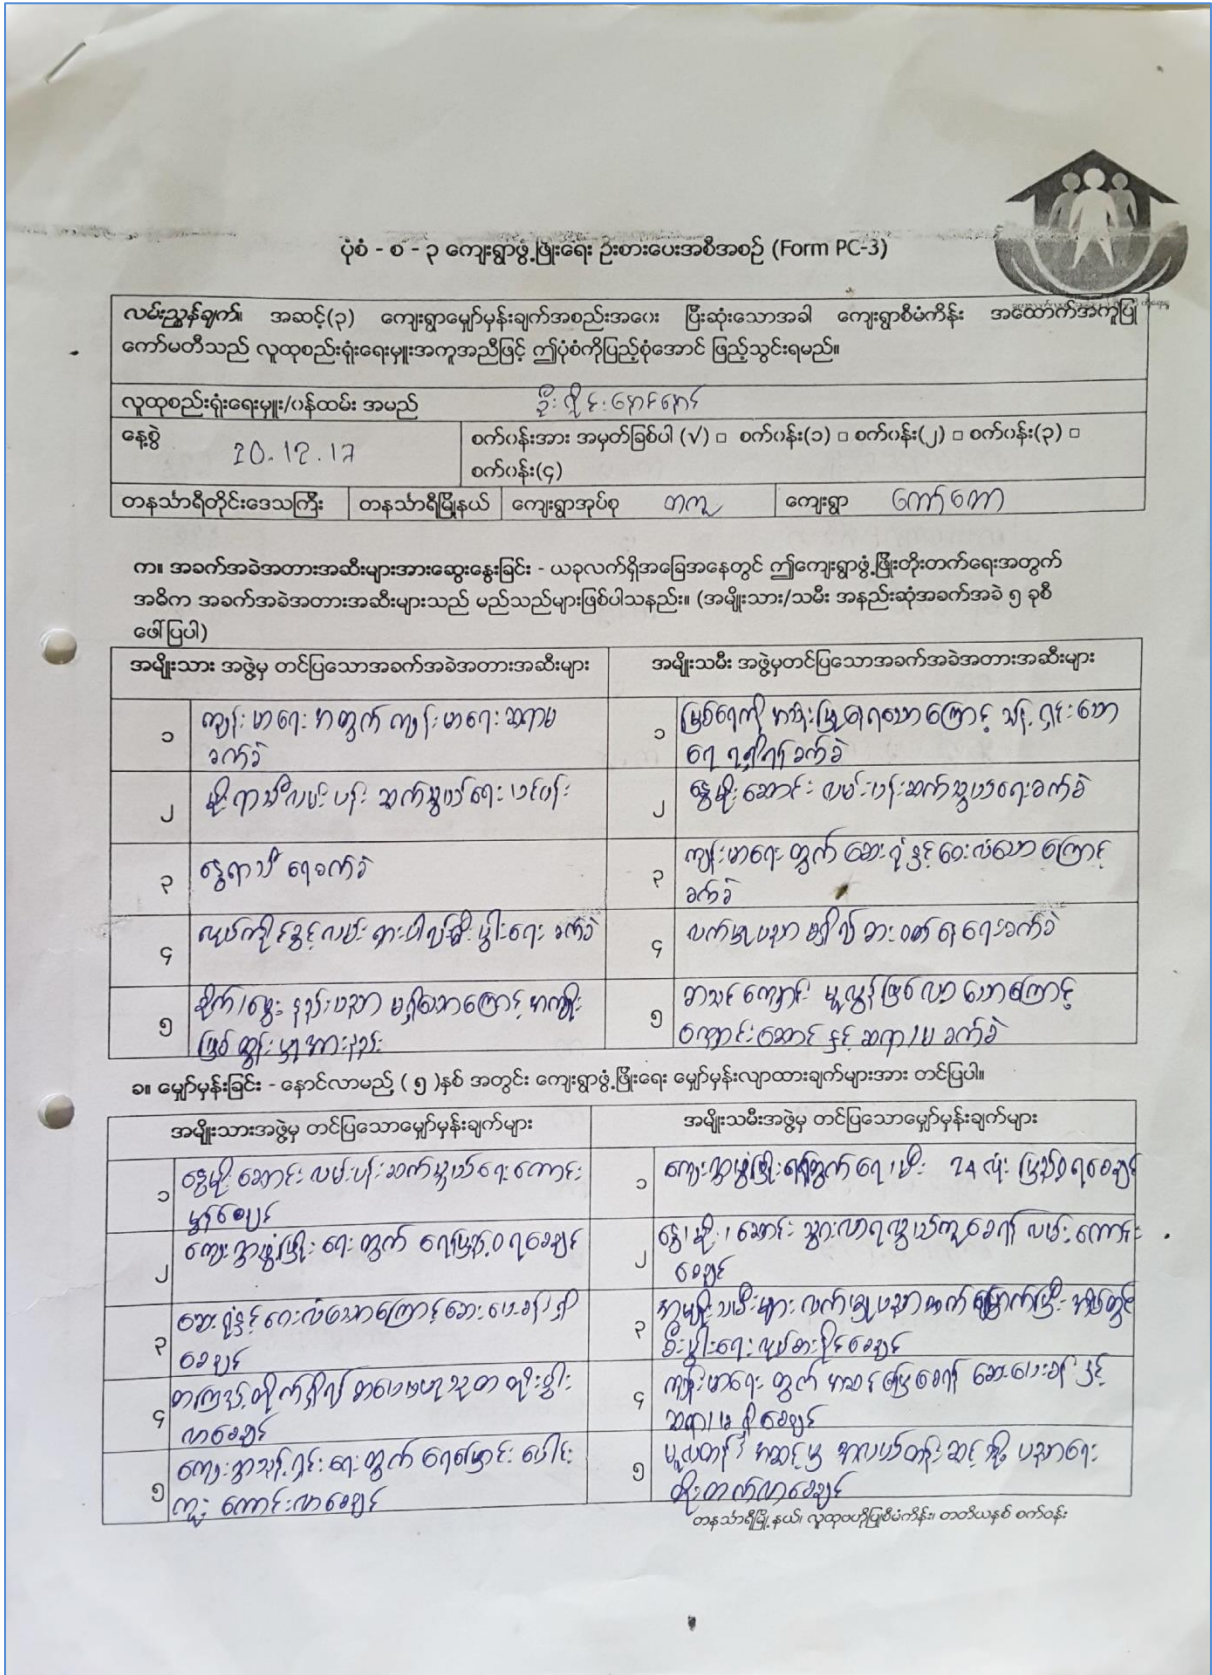 ပုံစံ - စ - ၃ ကျေးရွာဖွံ့ဖြိုးရေး ဦးစားပေးအစီအစဉ် (Form PC-3)
လမ်းညွှန်ချက်။ အဆင့်(၃) ကျေးရွာမျှော်မှန်းချက်အစည်းအဝေး ပြီးဆုံးသောအခါ ကျေးရွာစီမံကိန်း အထောက်အကူပြု
ကော်မတီသည် လူထုစည်းရုံးရေးမှူးအကူအညီဖြင့် ဤပုံစံကိုပြည့်စုံအောင် ဖြည့်သွင်းရမည်။
လူထုစည်းရုံးရေးမှူး/ဝန်ထမ်း အမည် ဦး
နေ့စွဲ 20.12.17 စက်ဝန်းအား အမှတ်ခြစ်ပါ (√) □ စက်ဝန်း(၁) □ စက်ဝန်း(၂) □ စက်ဝန်း(၃) □
စက်ဝန်း(၄)
တနင်္သာရီတိုင်းဒေသကြီး တနင်္သာရီမြို့နယ် ကျေးရွာအုပ်စု တကူ ကျေးရွာ
က။ အခက်အခဲအတားအဆီးများအားဆွေးနွေးခြင်း - ယခုလက်ရှိအခြေအနေတွင် ဤကျေးရွာဖွံ့ဖြိုးတိုးတက်ရေးအတွက်
အဓိက အခက်အခဲအတားအဆီးများသည် မည်သည်များဖြစ်ပါသနည်း။ (အမျိုးသား/သမီး အနည်းဆုံးအခက်အခဲ ၅ ခုစီ
ဖေါ်ပြပါ)
အမျိုးသား အဖွဲ့မှ တင်ပြသောအခက်အခဲအတားအဆီးများ အမျိုးသမီး အဖွဲ့မှတင်ပြသောအခက်အခဲအတားအဆီးများ
၁ ကျန်းမာရေး အတွက် ကျန်းမာရေး ဆရာမ
ခက်ခဲ
၁ မြစ်ရေကို အသုံးပြုနေရသောကြောင့် သန့်ရှင်းသော
ရေ ရရှိရန် ခက်ခဲ
၂ မိုးရာသီလမ်းပန်း ဆက်သွယ်ရေး
၂ နွေမိုးဆောင်း လမ်းပန်းဆက်သွယ်ရေးခက်ခဲ
၃ နွေရာသီ ရေခက်ခဲ
၃ ကျန်းမာရေးတွက် ဆေးရုံနှင့်ဝေးလံသောကြောင့်
ခက်ခဲ
၄ လုပ်ကိုင်ခွင့်လမ်း ရှားပါးလို့စီးပွါးရေး ခက်ခဲ
၄ လက်မှုပညာ မရှိလို့ စားဝတ်နေရေးခက်ခဲ
၅ စိုက်/မွေး နည်းပညာ မရှိသောကြောင့် အကျိုး
ဖြစ်ထွန်းမှုအားနည်း
၅ စာသင်ကျောင်း မူလွန်ဖြစ်လာသောကြောင့်
ကျောင်းဆောင်နှင့် ဆရာ/မ ခက်ခဲ
ခ။ မျှော်မှန်းခြင်း - နောင်လာမည့် ( ၅ )နှစ် အတွင်း ကျေးရွာဖွံ့ဖြိုးရေး မျှော်မှန်းလျာထားချက်များအား တင်ပြပါ။
အမျိုးသားအဖွဲ့မှ တင်ပြသောမျှော်မှန်းချက်များ အမျိုးသမီးအဖွဲ့မှ တင်ပြသောမျှော်မှန်းချက်များ
၁ နွေမိုးဆောင်း လမ်းပန်းဆက်သွယ်ရေးကောင်း
မွန်စေချင်
၁ ကျေးရွာဖွံ့ဖြိုးရေးတွက် ရေ၊မီး 24 လုံး ပြည့်ဝရစေချင်
၂ ကျေးရွာဖွံ့ဖြိုးရေးတွက် ရေပြည့်ဝရစေချင်
၂ နွေ၊မိုး၊ဆောင်း သွားလာရလွယ်ကူစေရန် လမ်းကောင်း
စေချင်
၃ ဆေးရုံနှင့်ဝေးလံသောကြောင့်ဆေးပေးခန်းရှိ
စေချင်
၃ အမျိုးသမီးများ လက်မှုပညာတတ်မြောက်ပြီး အိမ်တွင်း
စီးပွါးရေး လုပ်စားနိုင်စေချင်
၄ စာကြည့်တိုက်ရှိလို့ စာပေဗဟုသုတ တိုးပွါး
လာစေချင်
၄ ကျန်းမာရေးတွက် အဆင်ပြေစေရန် ဆေးပေးခန်းနှင့်
ဆရာ/မ ရှိစေချင်
၅ ကျေးရွာသန့်ရှင်းရေးတွက် ရေမြောင်း ပေါင်း
ကူး ကောင်းလာစေချင်
၅ မူလတန်းအဆင့်မှ အလယ်တန်းဆင့်သို့ ပညာရေး
တိုးတက်လာစေချင်
တနင်္သာရီမြို့နယ်၊ လူထုဗဟိုပြုစီမံကိန်း၊ တတိယနှစ် စက်ဝန်း